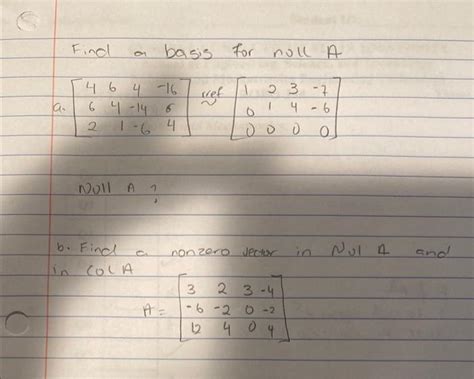 Find a basis for null A
a. [4 6 4 -16; 6 4 -14 6; 2 1 -6 4] rref ~ [1 2 3 -7; 0 1 4 -6; 0 0 0 0]
Null A ?
b. Find a nonzero vector in Nul A and
in Col A
A = [3 2 3 -4; -6 -2 0 -2; 12 4 0 4]